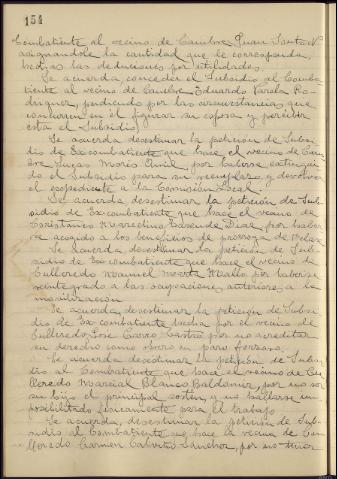 154
Combatiente al vecino de Cambre Juan Souto
asignandole la cantidad que le corresponda,
hechas las deducciones por utilidades.
Se acuerda, conceder el Subsidio al Comba-
tiente al vecino de Cambre Eduardo Varela Ro-
driguez, pudiendo por las circunstancias que
concurren en el figurar su esposa y percibir
esta el Subsidio.
Se acuerda, desestimar la petición de Subsi-
dio de Excombatiente que hace el vecino de Cam-
bre por haberse extingui-
do el Subsidio para su reemplazo, y devolver
el expediente a la Comisión Local.
Se acuerda desestimar la petición de Sub-
sidio de Ex-combatiente que hace el vecino de
Marcelino Diaz, por haber-
se acogido a los beneficios de prorroga de
Se acuerda desestimar la petición de Subsi-
dio de Ex-combatiente que hace el vecino de
Culleredo Manuel Mallo por haberse
reintegrado a las ocupaciones anteriores a la
movilización
Se acuerda, desestimar la petición de Subsi-
dio de Ex-combatiente hecha por el vecino de
Culleredo Jose Castro por no acreditar
su derecho como obrero en paro forzoso.
Se acuerda desestimar la petición de Subsi-
dio al Combatiente que hace el vecino de Cu-
lleredo Marcial Blanco Baldomir, por no ser
su hijo el principal sosten, y no hallarse im-
posibilitado fisicamente para el trabajo
Se acuerda, desestimar la petición de Sub-
sidio al Combatiente que hace la vecina de Cu-
lleredo Carmen Sanchez, por no tener